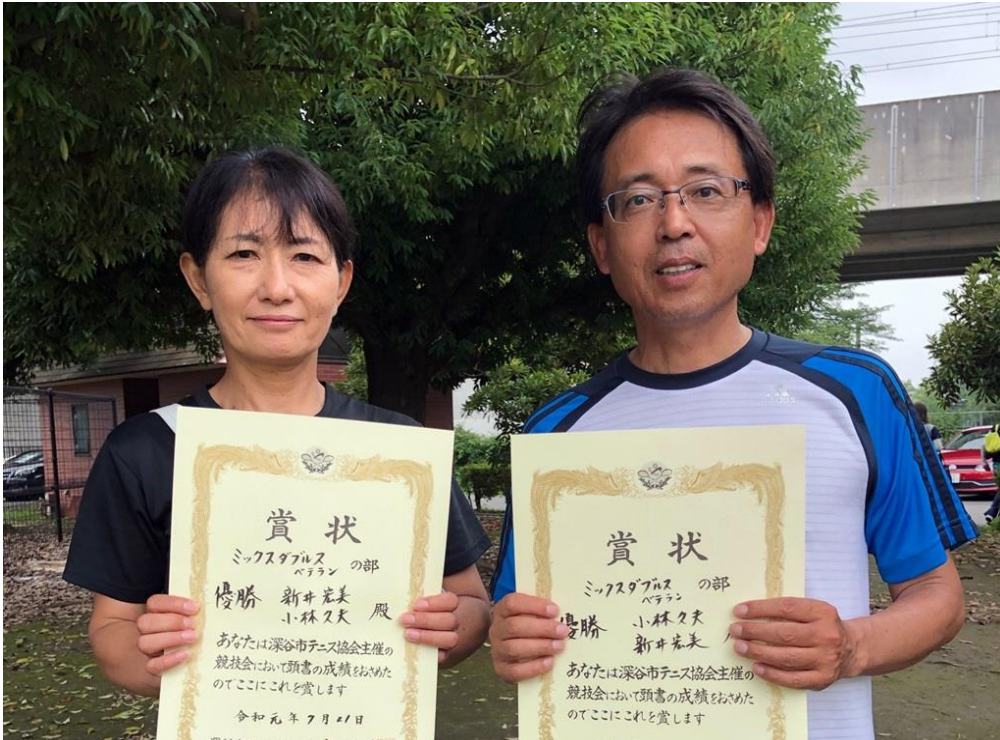 賞状
ミックスダブルス
ベテラン の部
優勝 新井宏美
小林久夫 殿
あなたは深谷市テニス協会主催の
競技会において頭書の成績をおさめた
のでここにこれを賞します
令和元年7月21日
賞状
ミックスダブルス の部
ベテラン
優勝 小林久夫
新井宏美
あなたは深谷市テニス協会主催の
競技会において頭書の成績をおさめた
のでここにこれを賞します
adidas